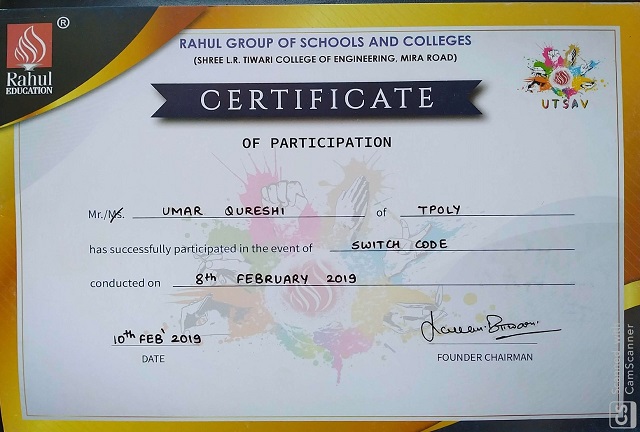 ®
Rahul
EDUCATION
RAHUL GROUP OF SCHOOLS AND COLLEGES
(SHREE L.R. TIWARI COLLEGE OF ENGINEERING, MIRA ROAD)
UTSAV
CERTIFICATE
OF PARTICIPATION
Mr./Ms. UMAR QURESHI of TPOLY
has successfully participated in the event of SWITCH CODE
conducted on 8th FEBRUARY 2019
10th FEB' 2019
DATE
FOUNDER CHAIRMAN
CS Scanned with
CamScanner